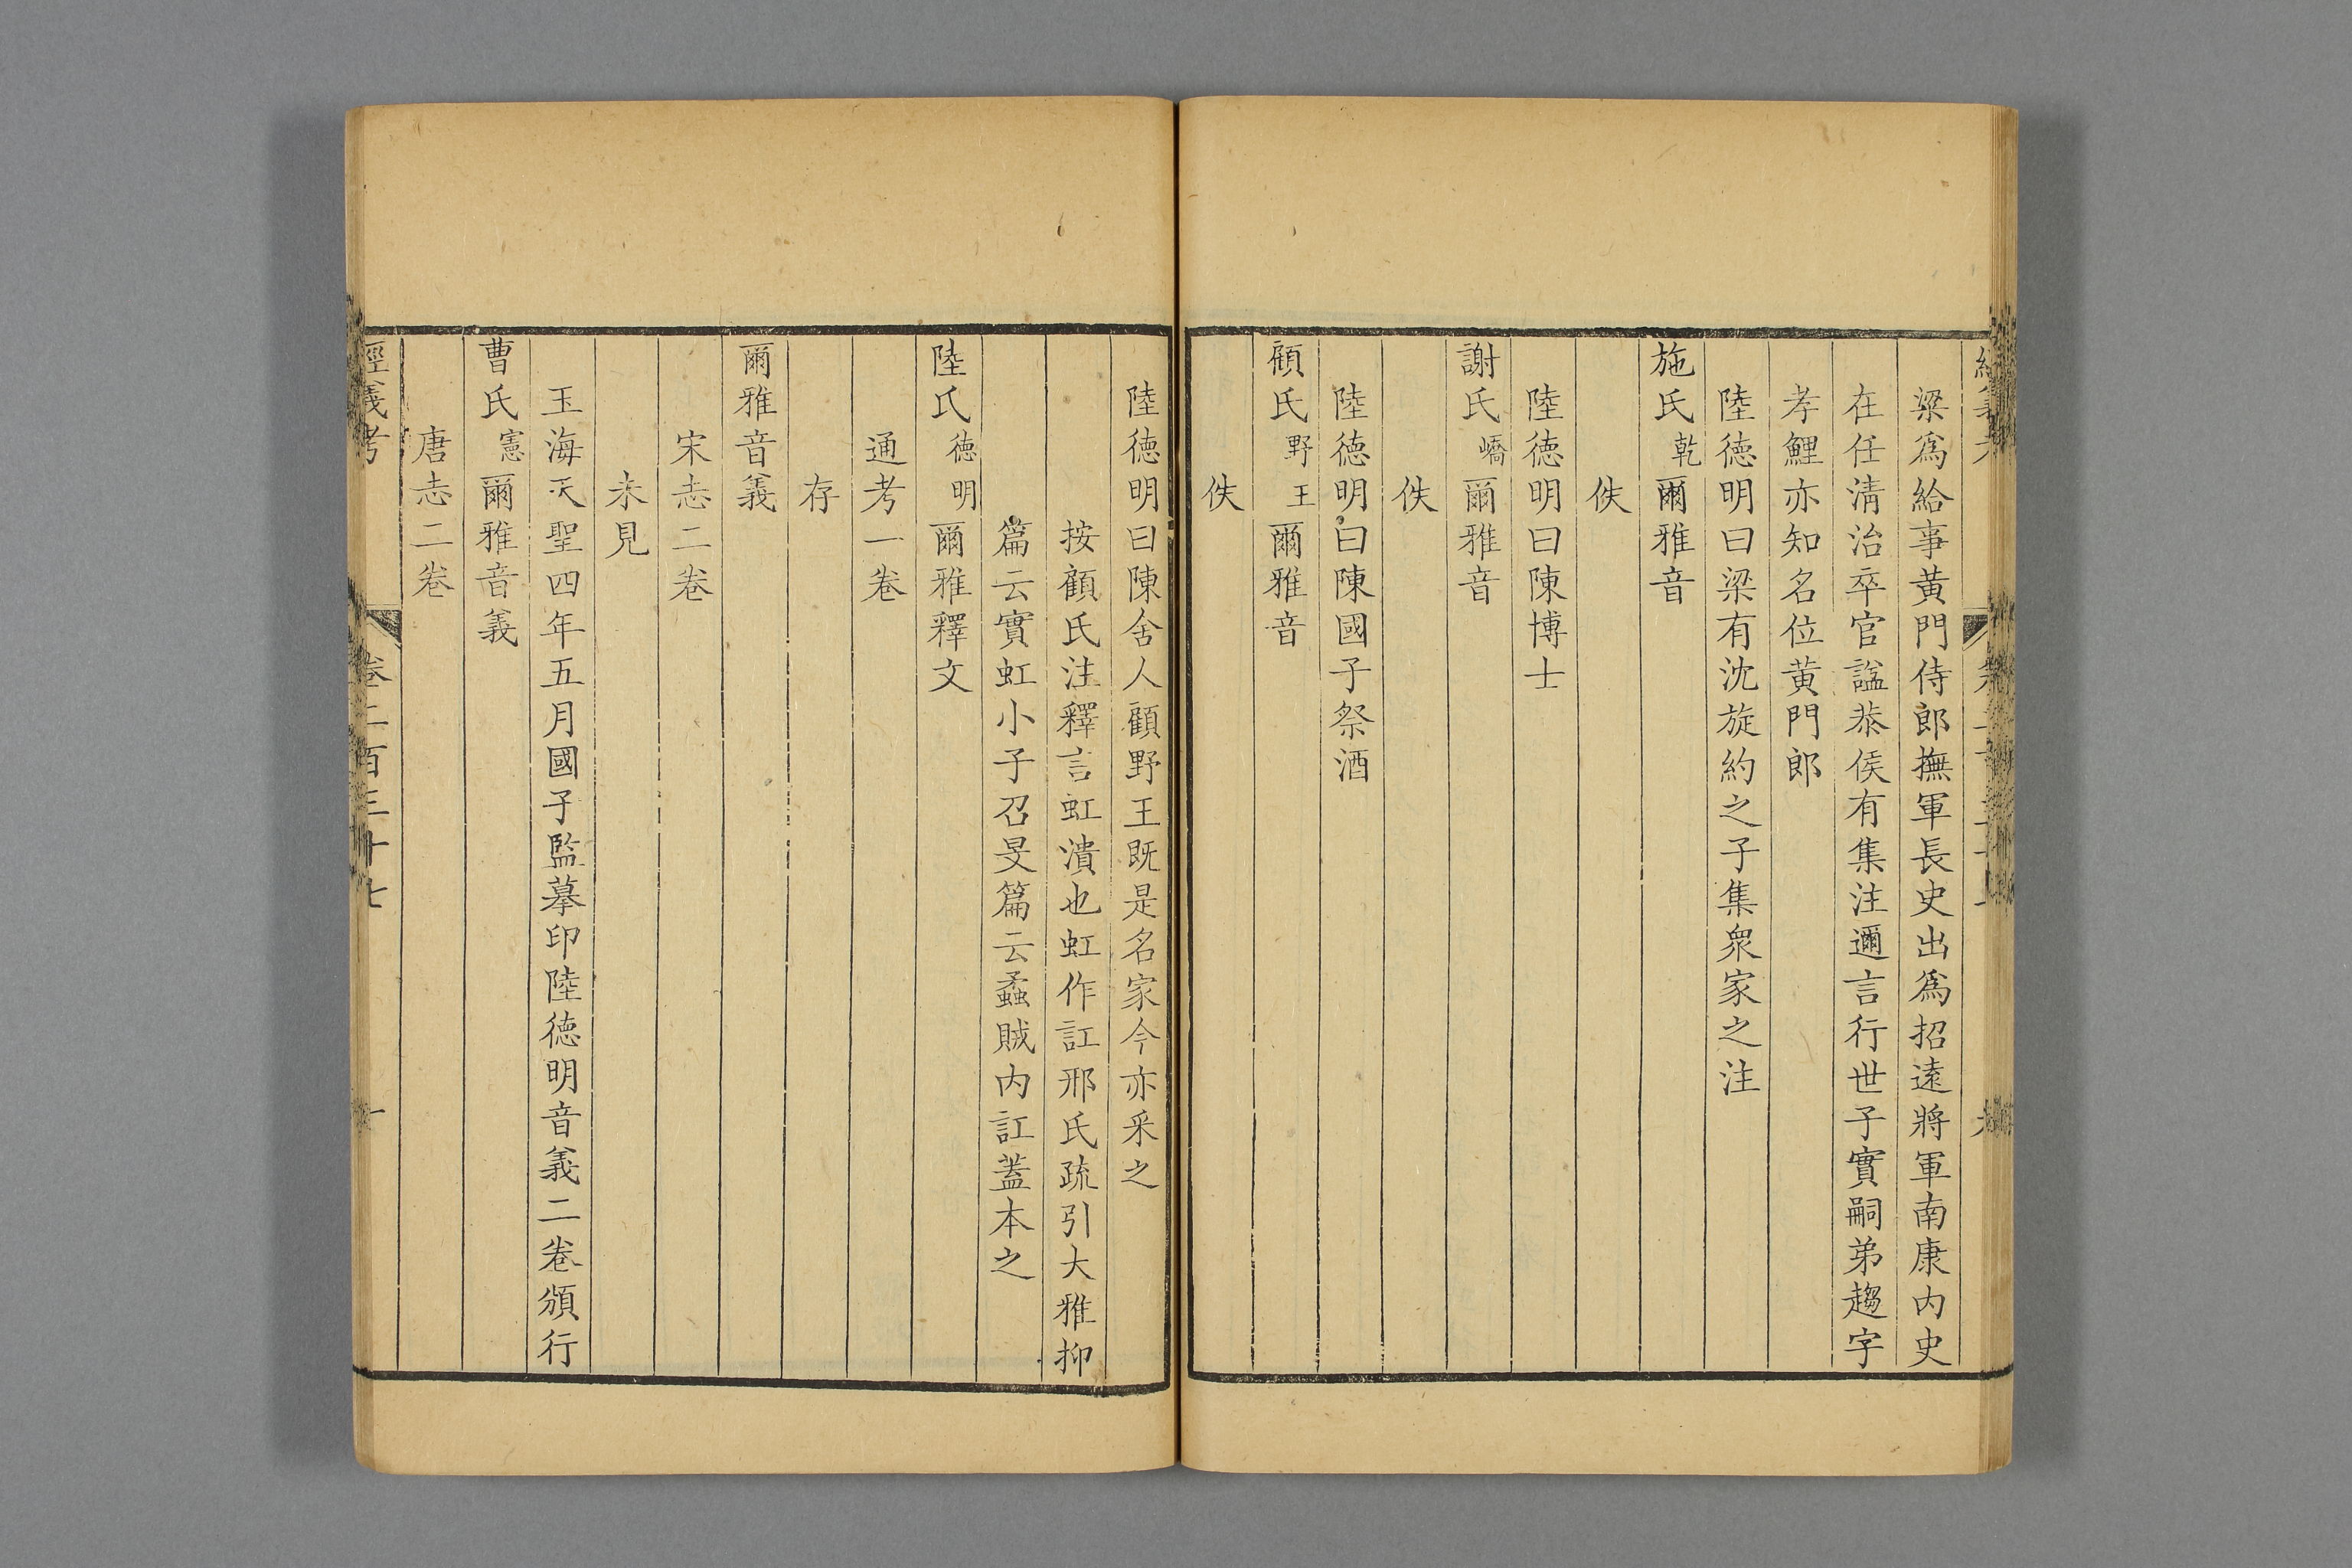 梁爲給事黃門侍郎撫軍長史出爲招遠將軍南康内史
在任淸治卒官諡恭侯有集注邇言行世子實嗣弟趨字
孝鯉亦知名位黃門郎
陸德明曰梁有沈旋約之子集衆家之注
施氏乾爾雅音
佚
陸德明曰陳博士
謝氏嶠爾雅音
佚
陸德明曰陳國子祭酒
顧氏野王爾雅音
佚
陸德明曰陳舍人顧野王既是名家今亦采之
按顧氏注釋言虹潰也虹作訌邢氏疏引大雅抑
篇云實虹小子召旻篇云蟊賊内訌蓋本之
陸氏德明爾雅釋文
通考一卷
存
爾雅音義
宋志二卷
未見
玉海天聖四年五月國子監摹印陸德明音義二卷頒行
曹氏憲爾雅音義
唐志二卷
經義考 卷二百三十七